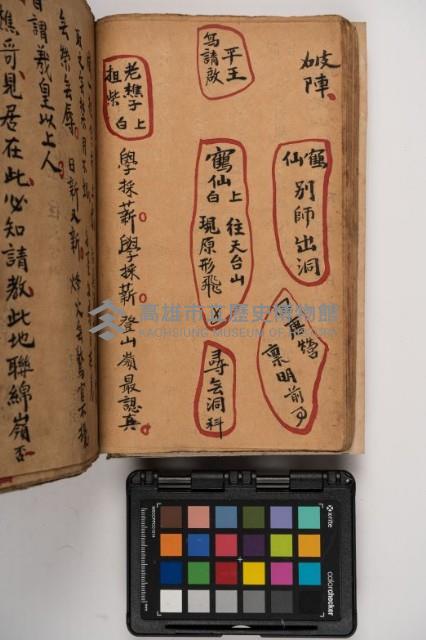 破陣
鶴仙 別師出洞
回萬營
稟明前因
平王
寫請啟
鶴仙上白 往天台山
現原形飛
尋無洞科
老樵子上
担柴 白
學採薪學採薪登山嶺最認真
日新又新
自謂羲皇以上人
樵哥見居在此必知請教此地聯綿嶺否
高雄市立歷史博物館
KAOHSIUNG MUSEUM OF HISTORY
x-rite
colorchecker